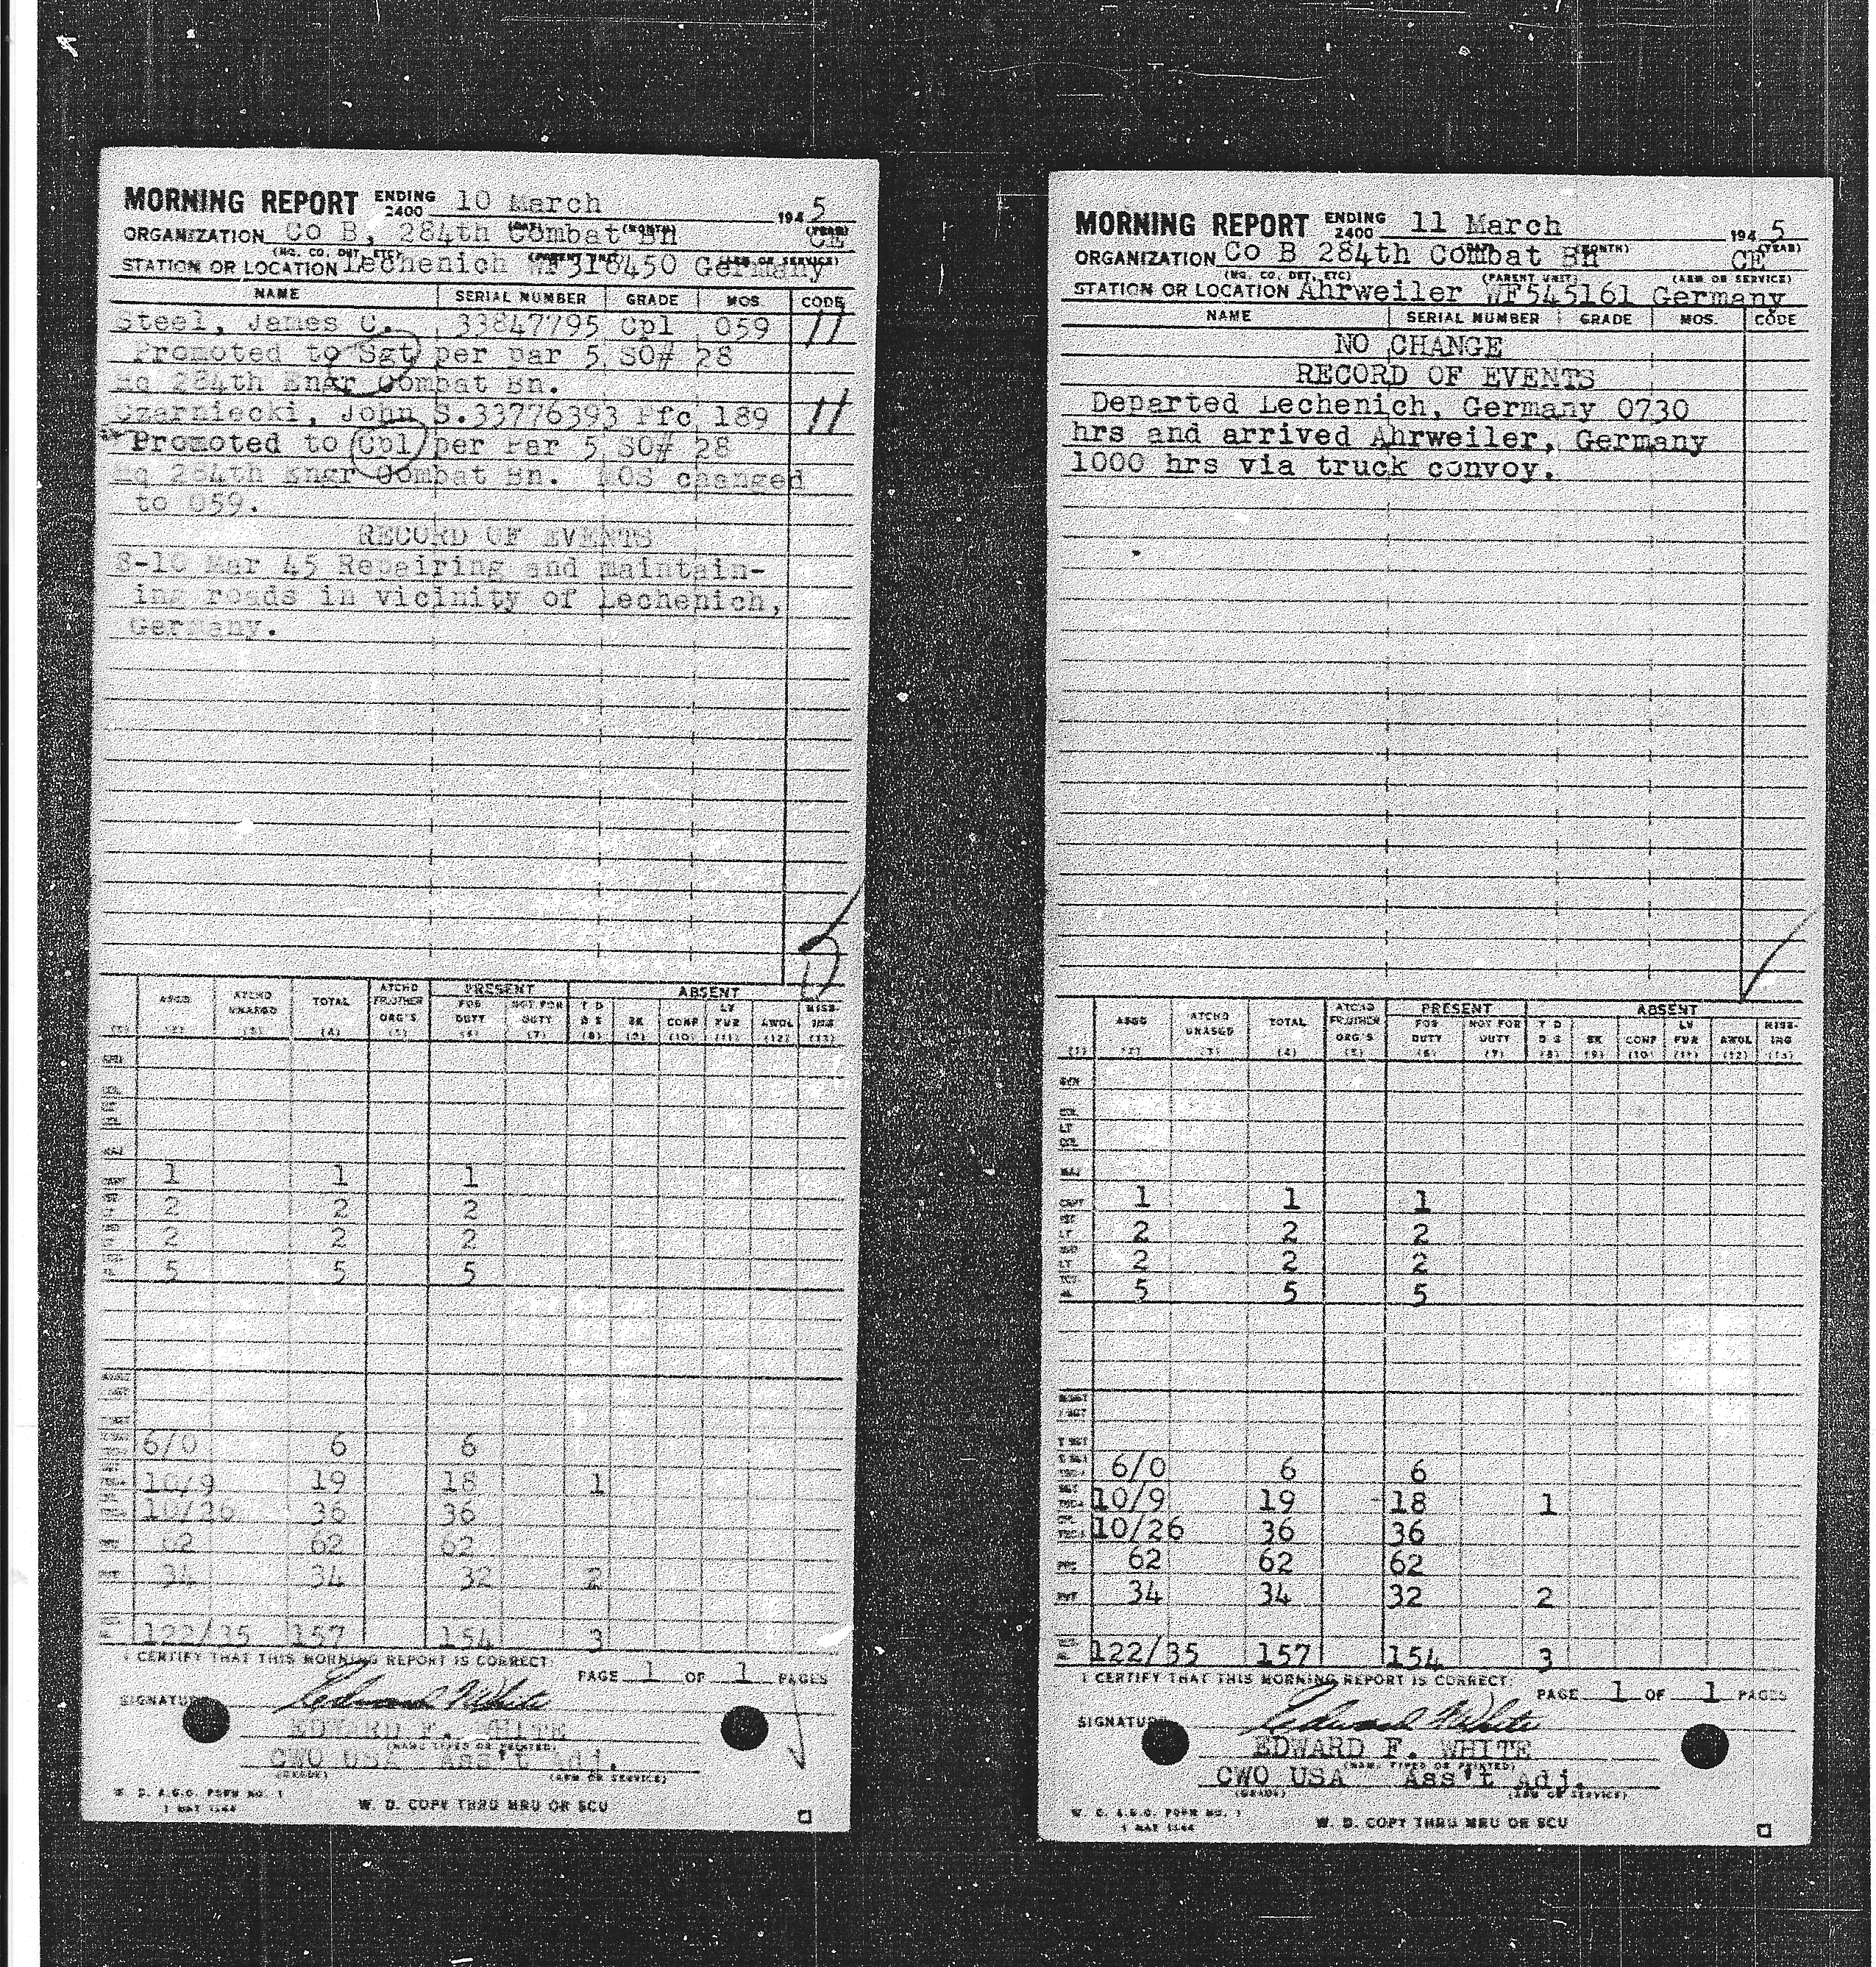 MORNING REPORT ENDING 2400 10 March 1945
(DAY) (MONTH) (YEAR)
ORGANIZATION Co B, 284th Combat Bn CE
(HQ. CO. DET. ETC) (PARENT UNIT) (ARM OR SERVICE)
STATION OR LOCATION Lechenich WF318450 Germany
NAME SERIAL NUMBER GRADE MOS CODE
Steel, James C. 33847795 Cpl 059 11
Promoted to Sgt per par 5 SO# 28
Hq 284th Engr Combat Bn.
Czarniecki, John S. 33776393 Pfc 189 11
Promoted to Cpl per Par 5 SO# 28
Hq 284th Engr Combat Bn. MOS changed
to 059.
RECORD OF EVENTS
8-10 Mar 45 Repairing and maintain-
ing roads in vicinity of Lechenich,
Germany.
PRESENT ABSENT
ASGD ATCHD UNASGD TOTAL ATCHD FR OTHER ORG'S FOR DUTY NOT FOR DUTY T D D S SK CONF LV FUR AWOL MISS-ING
(1) (2) (3) (4) (5) (6) (7) (8) (9) (10) (11) (12) (13)
1 1 1
2 2 2
2 2 2
5 5 5
6/0 6 6
10/9 19 18 1
10/26 36 36
62 62 62
34 34 32 2
122/35 157 154 3
I CERTIFY THAT THIS MORNING REPORT IS CORRECT:
PAGE 1 OF 1 PAGES
SIGNATURE Edward F White
EDWARD F. WHITE
(NAME TYPED OR PRINTED)
CWO USA Ass't Adj.
(GRADE) (ARM OR SERVICE)
W. D. A.G.O. FORM NO. 1
1 MAY 1944
W. D. COPY THRU MRU OR SCU
MORNING REPORT ENDING 2400 11 March 1945
(DAY) (MONTH) (YEAR)
ORGANIZATION Co B 284th Combat Bn CE
(HQ. CO. DET. ETC) (PARENT UNIT) (ARM OR SERVICE)
STATION OR LOCATION Ahrweiler WF545161 Germany
NAME SERIAL NUMBER GRADE MOS. CODE
NO CHANGE
RECORD OF EVENTS
Departed Lechenich, Germany 0730
hrs and arrived Ahrweiler, Germany
1000 hrs via truck convoy.
PRESENT ABSENT
ASGD ATCHD UNASGD TOTAL ATCHD FR OTHER ORG'S FOR DUTY NOT FOR DUTY T D D S SK CONF LV FUR AWOL MISS-ING
(1) (2) (3) (4) (5) (6) (7) (8) (9) (10) (11) (12) (13)
GEN
COL
LT
COL
MAJ
CAPT 1 1 1
1ST LT 2 2 2
2ND LT 2 2 2
5 5 5
6/0 6 6
10/9 19 18 1
10/26 36 36
PFC 62 62 62
PVT 34 34 32 2
122/35 157 154 3
I CERTIFY THAT THIS MORNING REPORT IS CORRECT:
PAGE 1 OF 1 PAGES
SIGNATURE Edward F White
EDWARD F. WHITE
(NAME TYPED OR PRINTED)
CWO USA Ass't Adj.
(GRADE) (ARM OR SERVICE)
W. D. A.G.O. FORM NO. 1
1 MAY 1944
W. D. COPY THRU MRU OR SCU